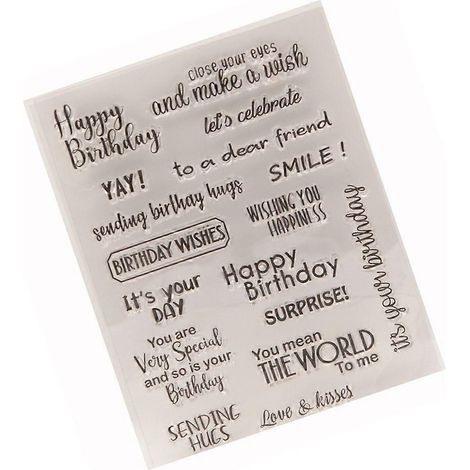 close your eyes
and make a wish
Happy
Birthday
let's celebrate
to a dear friend
YAY!
SMILE !
sending birthay hugs
WISHING YOU
HAPPINESS
BIRTHDAY WISHES
it's your birthday
It's your
DAY
Happy
Birthday
SURPRISE!
You are
Very Special
and so is your
Birthday
You mean
THE WORLD
To me
SENDING
HUGS
Love & kisses